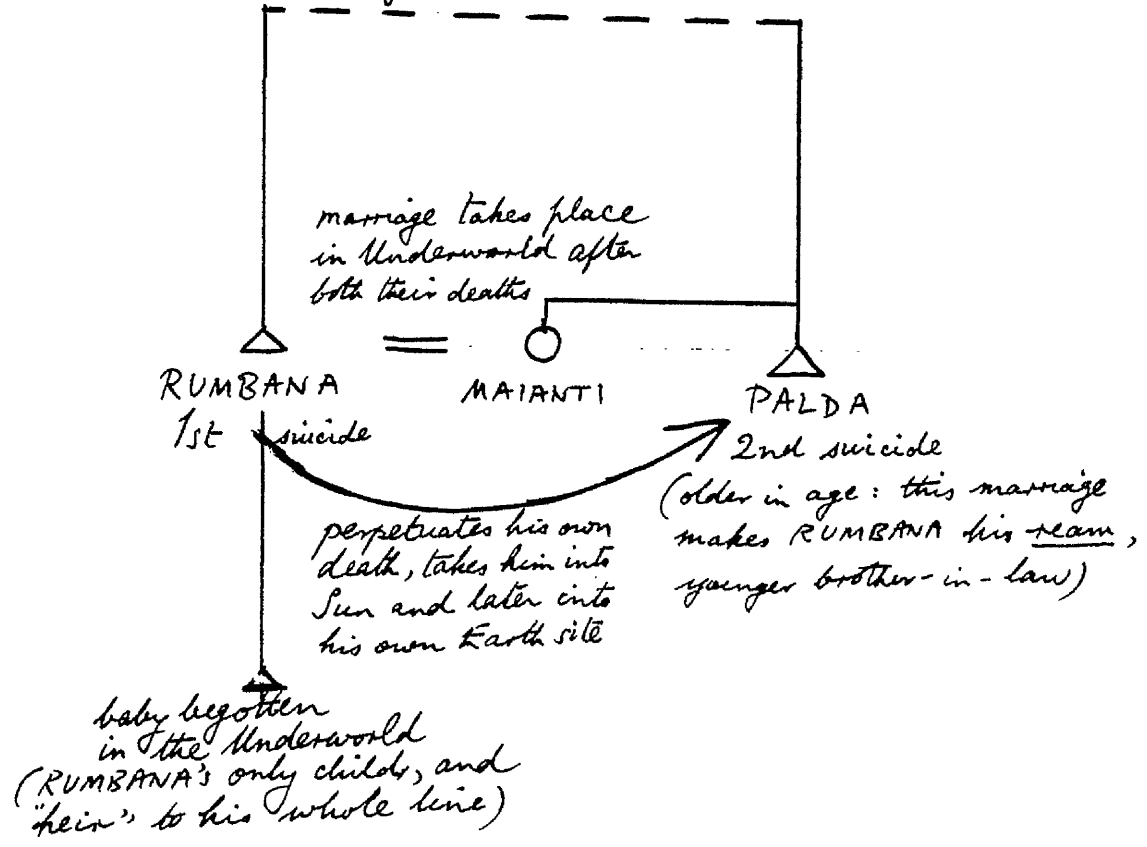 marriage takes place
in Underworld after
both their deaths
RUMBANA
1st suicide
MAIANTI
PALDA
2nd suicide
(older in age: this marriage
makes RUMBANA his ream,
younger brother-in-law)
perpetuates his own
death, takes him into
Sun and later into
his own Earth site
baby begotten
in the Underworld
(RUMBANA's only child, and
"heir" to his whole line)